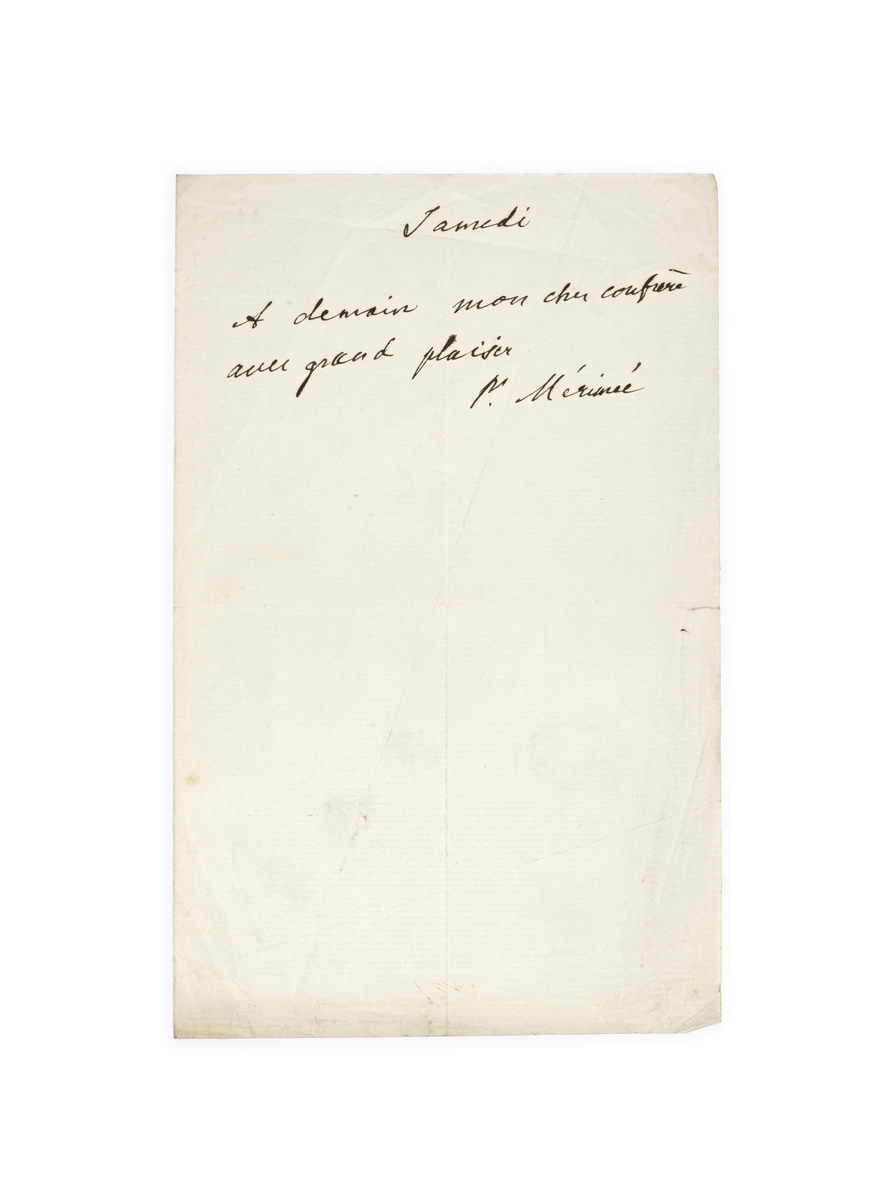 Samedi
A demain mon cher confrère
avec grand plaisir
Pr. Mérimée